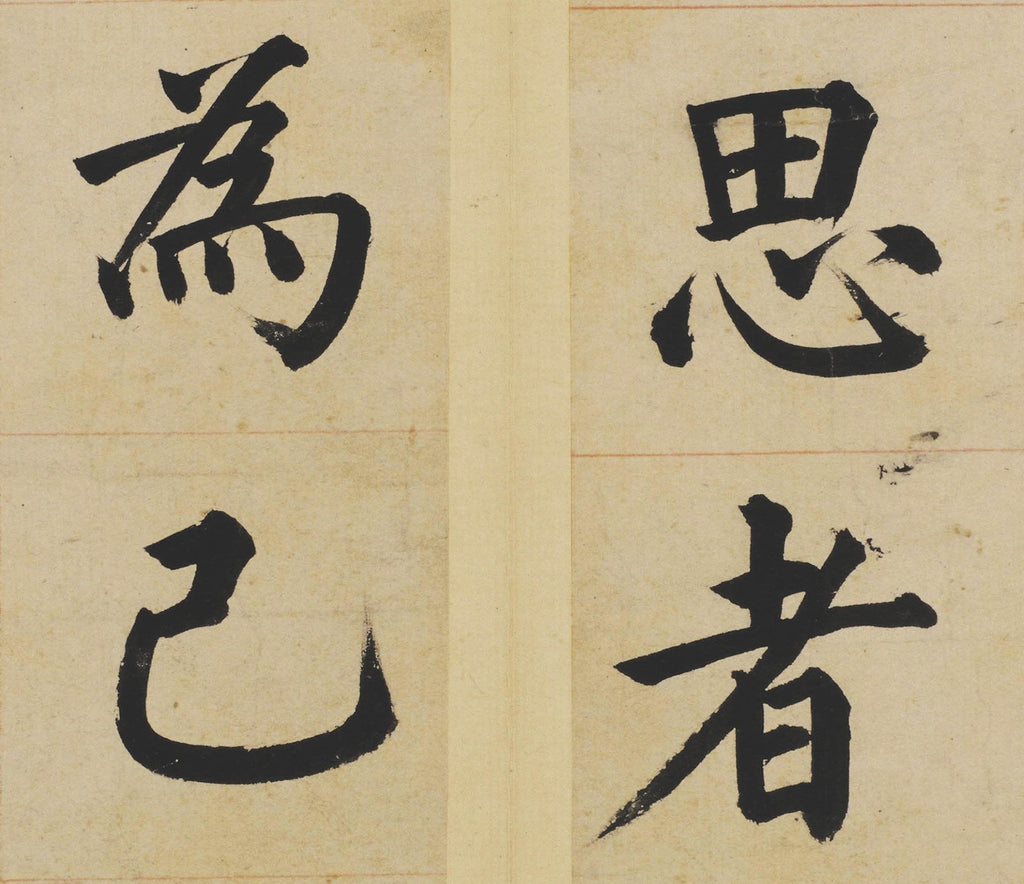 思者
為己